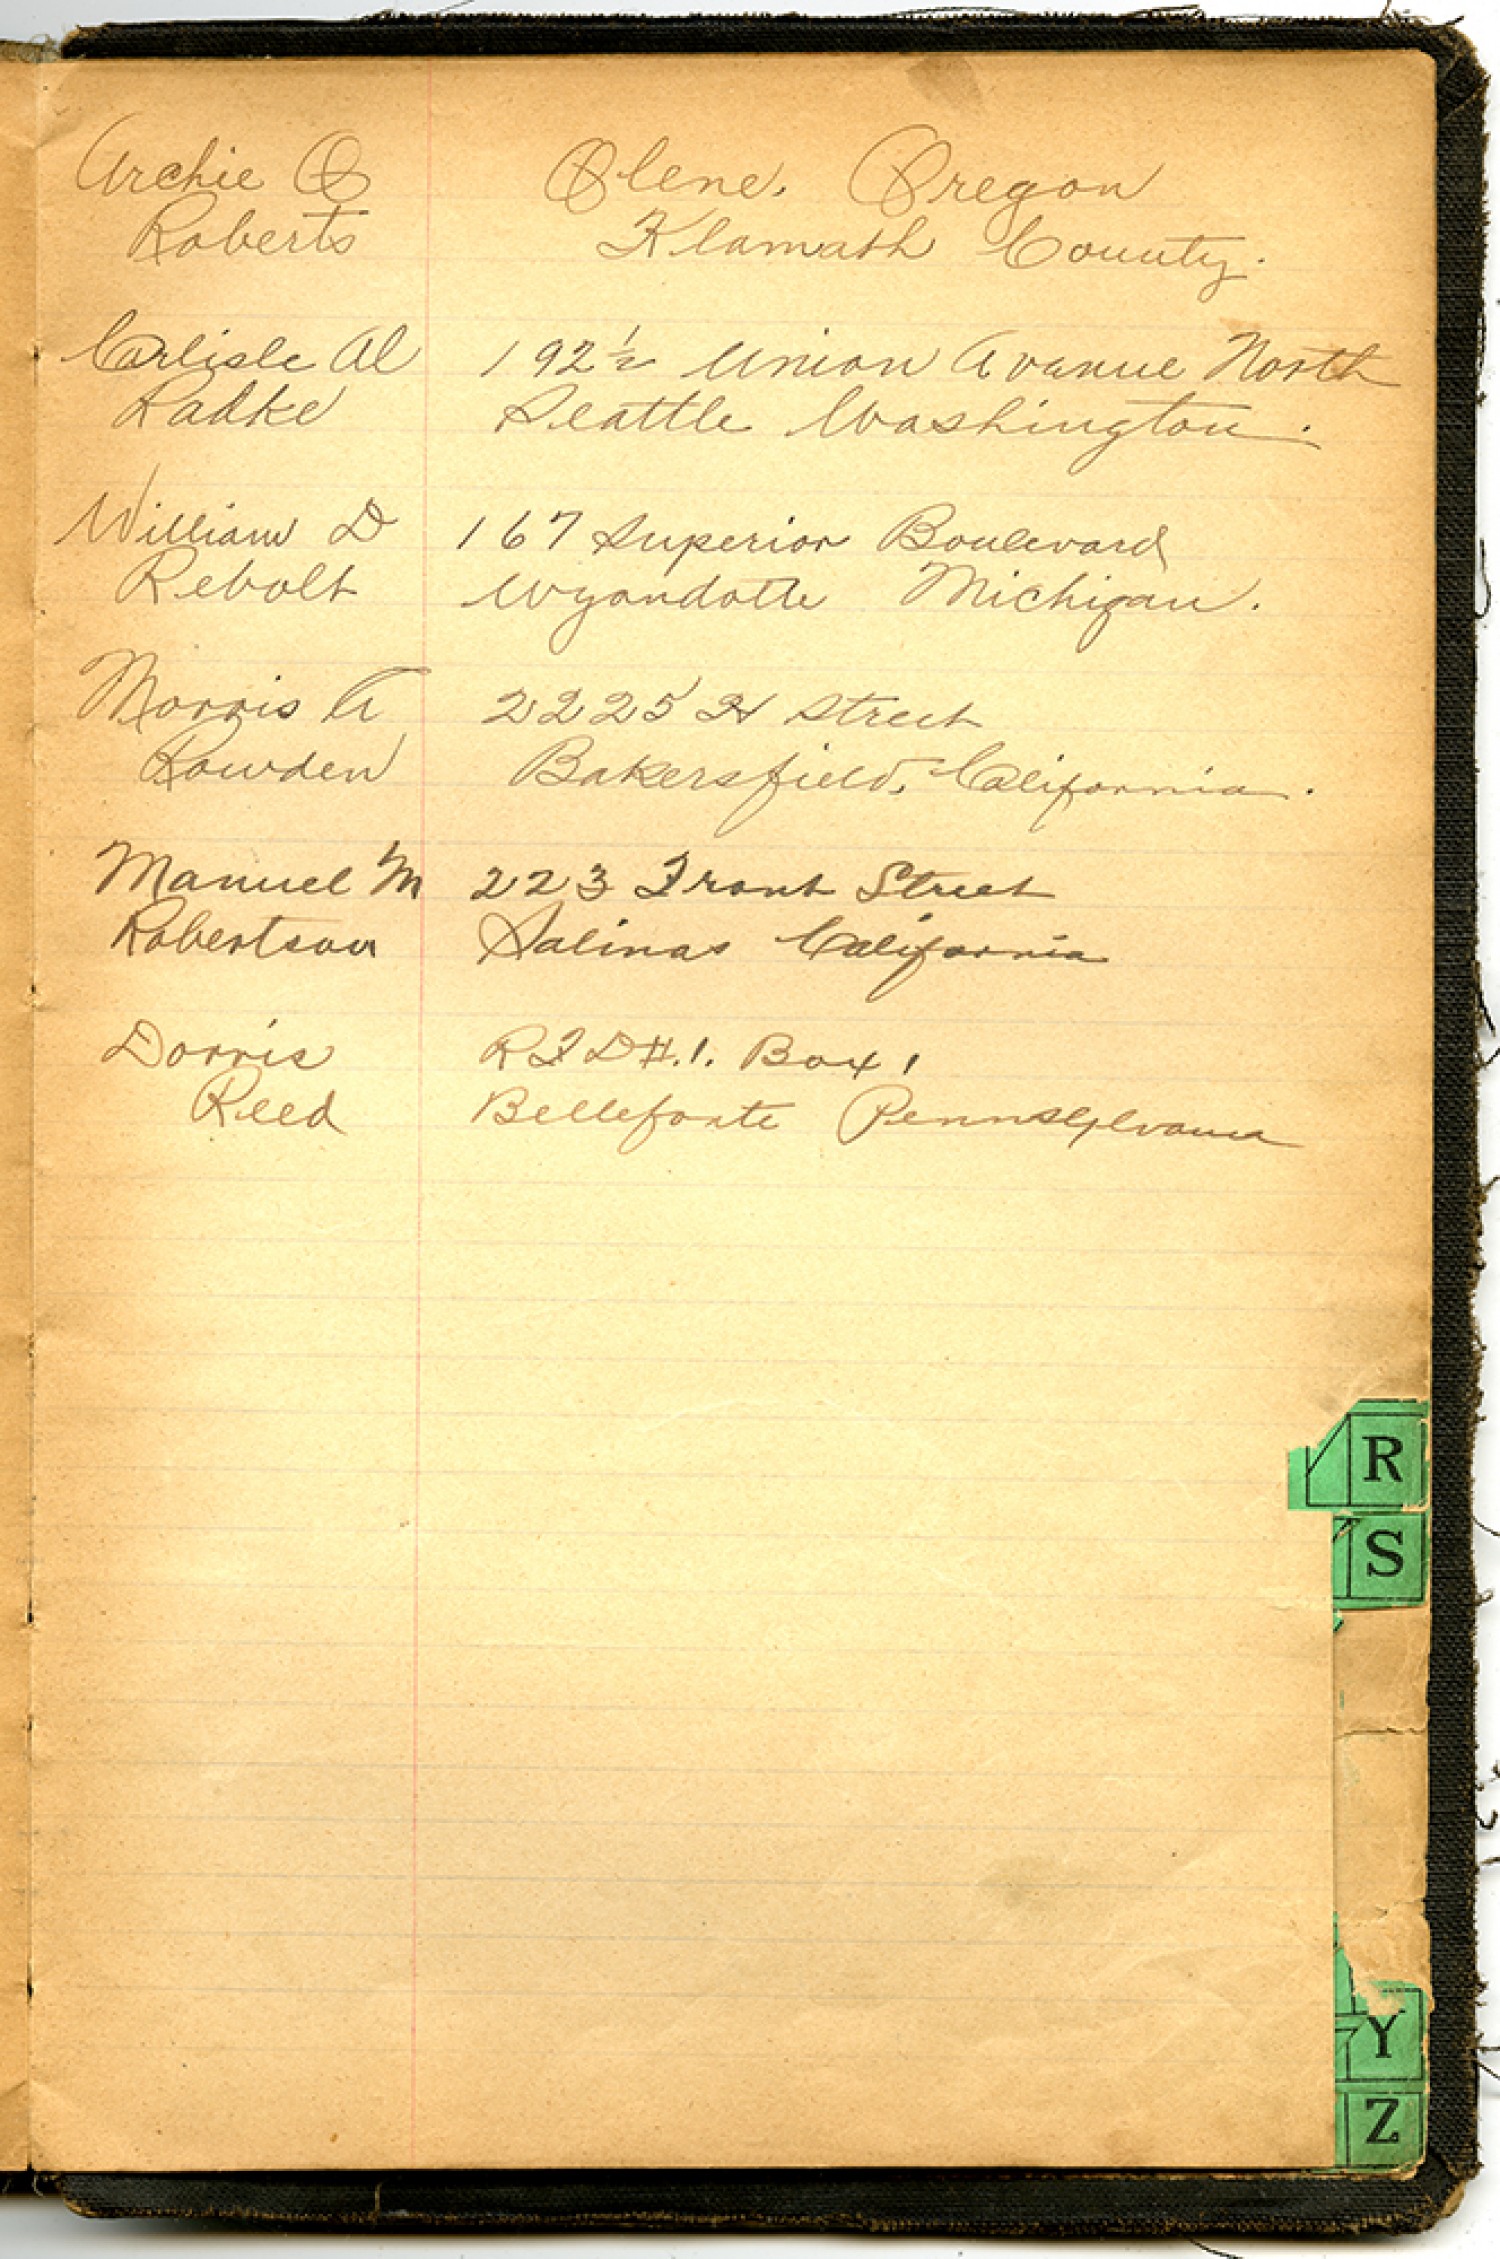 Archie O Olene, Oregon
Roberts Klamath County.
Carlisle Al 192½ Union Avanue North
Radke Seattle Washington.
William D 167 Superior Boulevard
Rebolt Wyandotte Michigan.
Morris A 2225 H Street
Rowden Bakersfield, California.
Manuel M 223 Front Street
Robertson Salinas California
Dorris RFD #.1. Box 1
Reed Bellefonte Pennsylvania
R
S
Y
Z